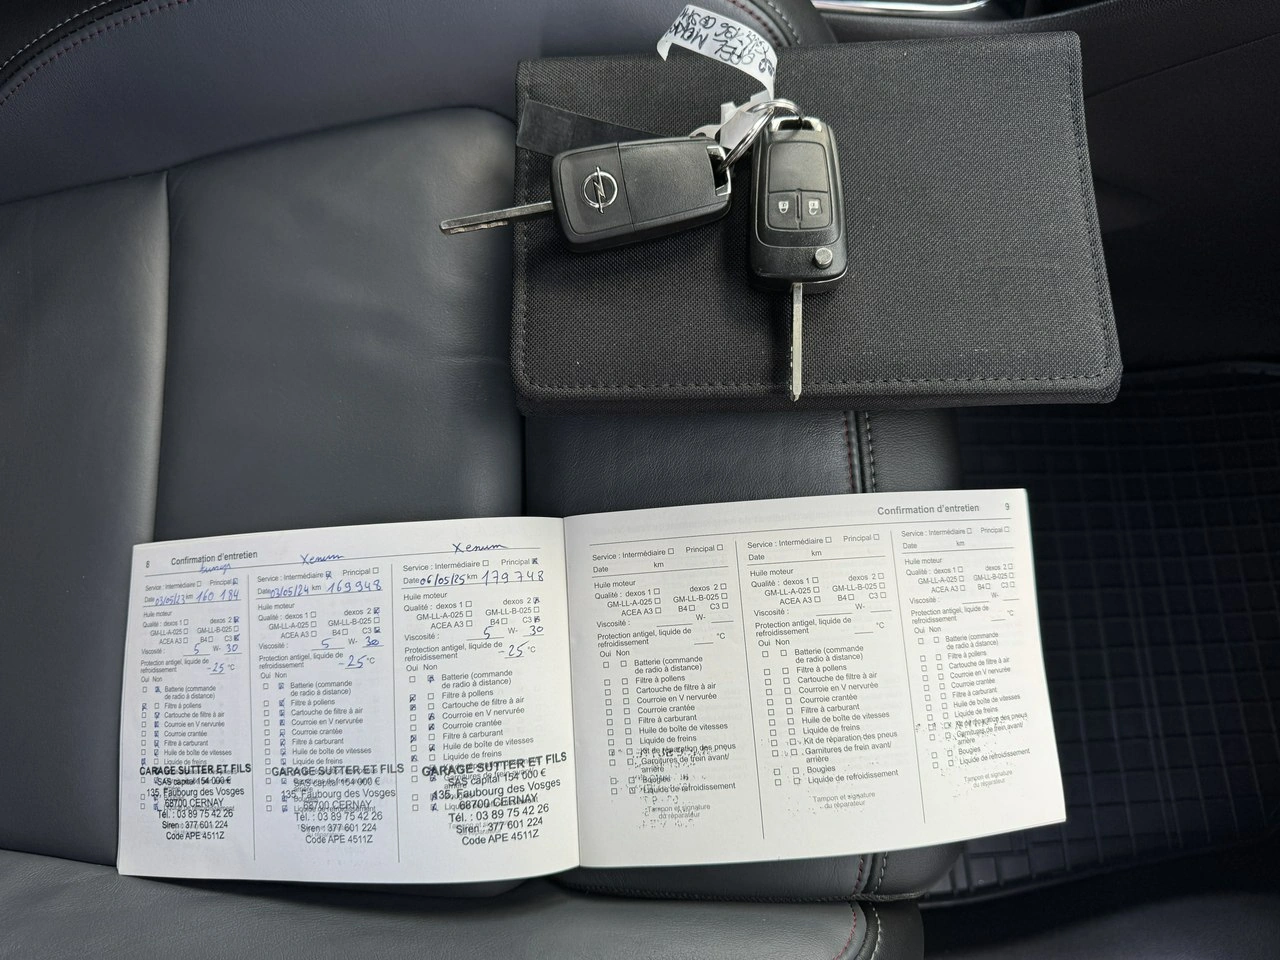 OPEL
8 Confirmation d'entretien
Xenum
Service : Intermédiaire ☐ Principal ☒
Date 03/05/23 km 160 184
Huile moteur
Qualité : dexos 1 ☐ dexos 2 ☒
GM-LL-A-025 ☐ GM-LL-B-025 ☐
ACEA A3 ☐ B4 ☐ C3 ☒
Viscosité : 5 W- 30
Protection antigel, liquide de
refroidissement -25 °C
Oui Non
Batterie (commande
de radio à distance)
Filtre à pollens
Cartouche de filtre à air
Courroie en V nervurée
Courroie crantée
Filtre à carburant
Huile de boîte de vitesses
Liquide de freins
GARAGE SUTTER ET FILS
SAS capital 154 000 €
135, Faubourg des Vosges
68700 CERNAY
Tél. : 03 89 75 42 26
Siren : 377 601 224
Code APE 4511Z
Xenum
Service : Intermédiaire ☒ Principal ☐
Date 03/05/24 km 169 948
Huile moteur
Qualité : dexos 1 ☐ dexos 2 ☒
GM-LL-A-025 ☐ GM-LL-B-025 ☐
ACEA A3 ☐ B4 ☐ C3 ☒
Viscosité : 5 W- 30
Protection antigel, liquide de
refroidissement -25 °C
Oui Non
Batterie (commande
de radio à distance)
Filtre à pollens
Cartouche de filtre à air
Courroie en V nervurée
Courroie crantée
Filtre à carburant
Huile de boîte de vitesses
Liquide de freins
GARAGE SUTTER ET FILS
SAS capital 154 000 €
135, Faubourg des Vosges
68700 CERNAY
Tél. : 03 89 75 42 26
Siren : 377 601 224
Code APE 4511Z
Xenum
Service : Intermédiaire ☐ Principal ☒
Date 06/05/25 km 179 748
Huile moteur
Qualité : dexos 1 ☐ dexos 2 ☒
GM-LL-A-025 ☐ GM-LL-B-025 ☐
ACEA A3 ☐ B4 ☐ C3 ☒
Viscosité : 5 W- 30
Protection antigel, liquide de
refroidissement -25 °C
Oui Non
Batterie (commande
de radio à distance)
Filtre à pollens
Cartouche de filtre à air
Courroie en V nervurée
Courroie crantée
Filtre à carburant
Huile de boîte de vitesses
Liquide de freins
GARAGE SUTTER ET FILS
SAS capital 154 000 €
135, Faubourg des Vosges
68700 CERNAY
Tél. : 03 89 75 42 26
Siren : 377 601 224
Code APE 4511Z
Confirmation d'entretien 9
Service : Intermédiaire ☐ Principal ☐
Date km
Huile moteur
Qualité : dexos 1 ☐ dexos 2 ☐
GM-LL-A-025 ☐ GM-LL-B-025 ☐
ACEA A3 ☐ B4 ☐ C3 ☐
Viscosité : W-
Protection antigel, liquide de
refroidissement °C
Oui Non
Batterie (commande
de radio à distance)
Filtre à pollens
Cartouche de filtre à air
Courroie en V nervurée
Courroie crantée
Filtre à carburant
Huile de boîte de vitesses
Liquide de freins
Kit de réparation des pneus
Garnitures de frein avant/
arrière
Bougies
Liquide de refroidissement
Tampon et signature
du réparateur
Service : Intermédiaire ☐ Principal ☐
Date km
Huile moteur
Qualité : dexos 1 ☐ dexos 2 ☐
GM-LL-A-025 ☐ GM-LL-B-025 ☐
ACEA A3 ☐ B4 ☐ C3 ☐
Viscosité : W-
Protection antigel, liquide de
refroidissement °C
Oui Non
Batterie (commande
de radio à distance)
Filtre à pollens
Cartouche de filtre à air
Courroie en V nervurée
Courroie crantée
Filtre à carburant
Huile de boîte de vitesses
Liquide de freins
Kit de réparation des pneus
Garnitures de frein avant/
arrière
Bougies
Liquide de refroidissement
Tampon et signature
du réparateur
Service : Intermédiaire ☐ Principal ☐
Date km
Huile moteur
Qualité : dexos 1 ☐ dexos 2 ☐
GM-LL-A-025 ☐ GM-LL-B-025 ☐
ACEA A3 ☐ B4 ☐ C3 ☐
Viscosité : W-
Protection antigel, liquide de
refroidissement °C
Oui Non
Batterie (commande
de radio à distance)
Filtre à pollens
Cartouche de filtre à air
Courroie en V nervurée
Courroie crantée
Filtre à carburant
Huile de boîte de vitesses
Liquide de freins
Kit de réparation des pneus
Garnitures de frein avant/
arrière
Bougies
Liquide de refroidissement
Tampon et signature
du réparateur